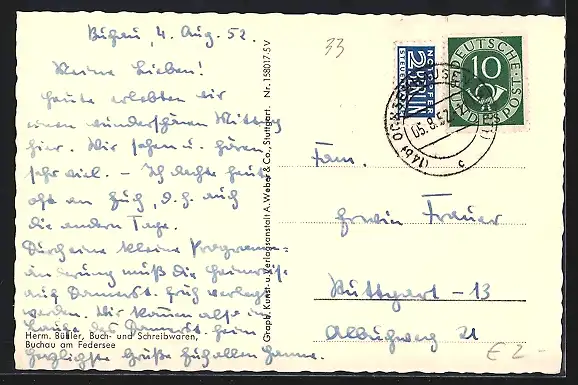 Buchau, 4. Aug. 52.
Meine Lieben!
Heute erlebten wir
einen wunderschönen Mittag
hier. Wir sehen u. hören
sehr viel. – Ich dachte heute
oft an Euch, d.h. auch
die andern Tage.
Durch eine kleine Programm-
änderung muß die Heimreise
auf Donnerst. früh verlegt
werden. Wir kommen also im
Laufe des Donnerst. heim
Herzlichste Grüße Euch allen
Herm. Büller, Buch- und Schreibwaren,
Buchau am Federsee
Graph. Kunst- u. Verlagsanstalt A. Weber & Co., Stuttgart. Nr. 158017 SV
33
NOTOPFER
2 BERLIN
STEUERMARKE
DEUTSCHE
10
BUNDESPOST
(14b)
05.8.52
c
Fam.
Erwin Frauer
Stuttgart - 13
Albuchweg 21
€ 2-